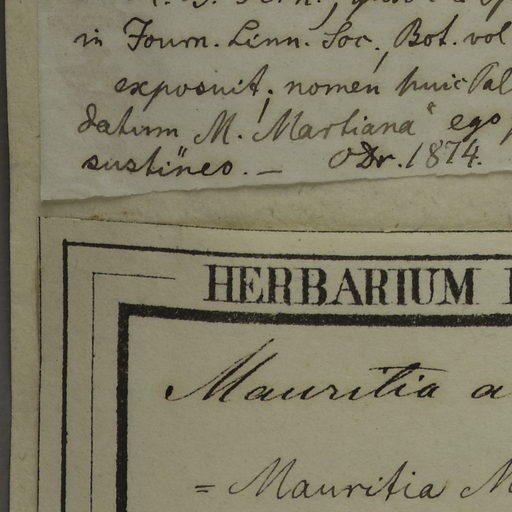 in Journ. Linn. Soc., Bot. vol
exposuit; nomen huic Pal
datum M. Martiana" ego
sustineo. — ODr. 1874.
HERBARIUM
Mauritia a
= Mauritia M